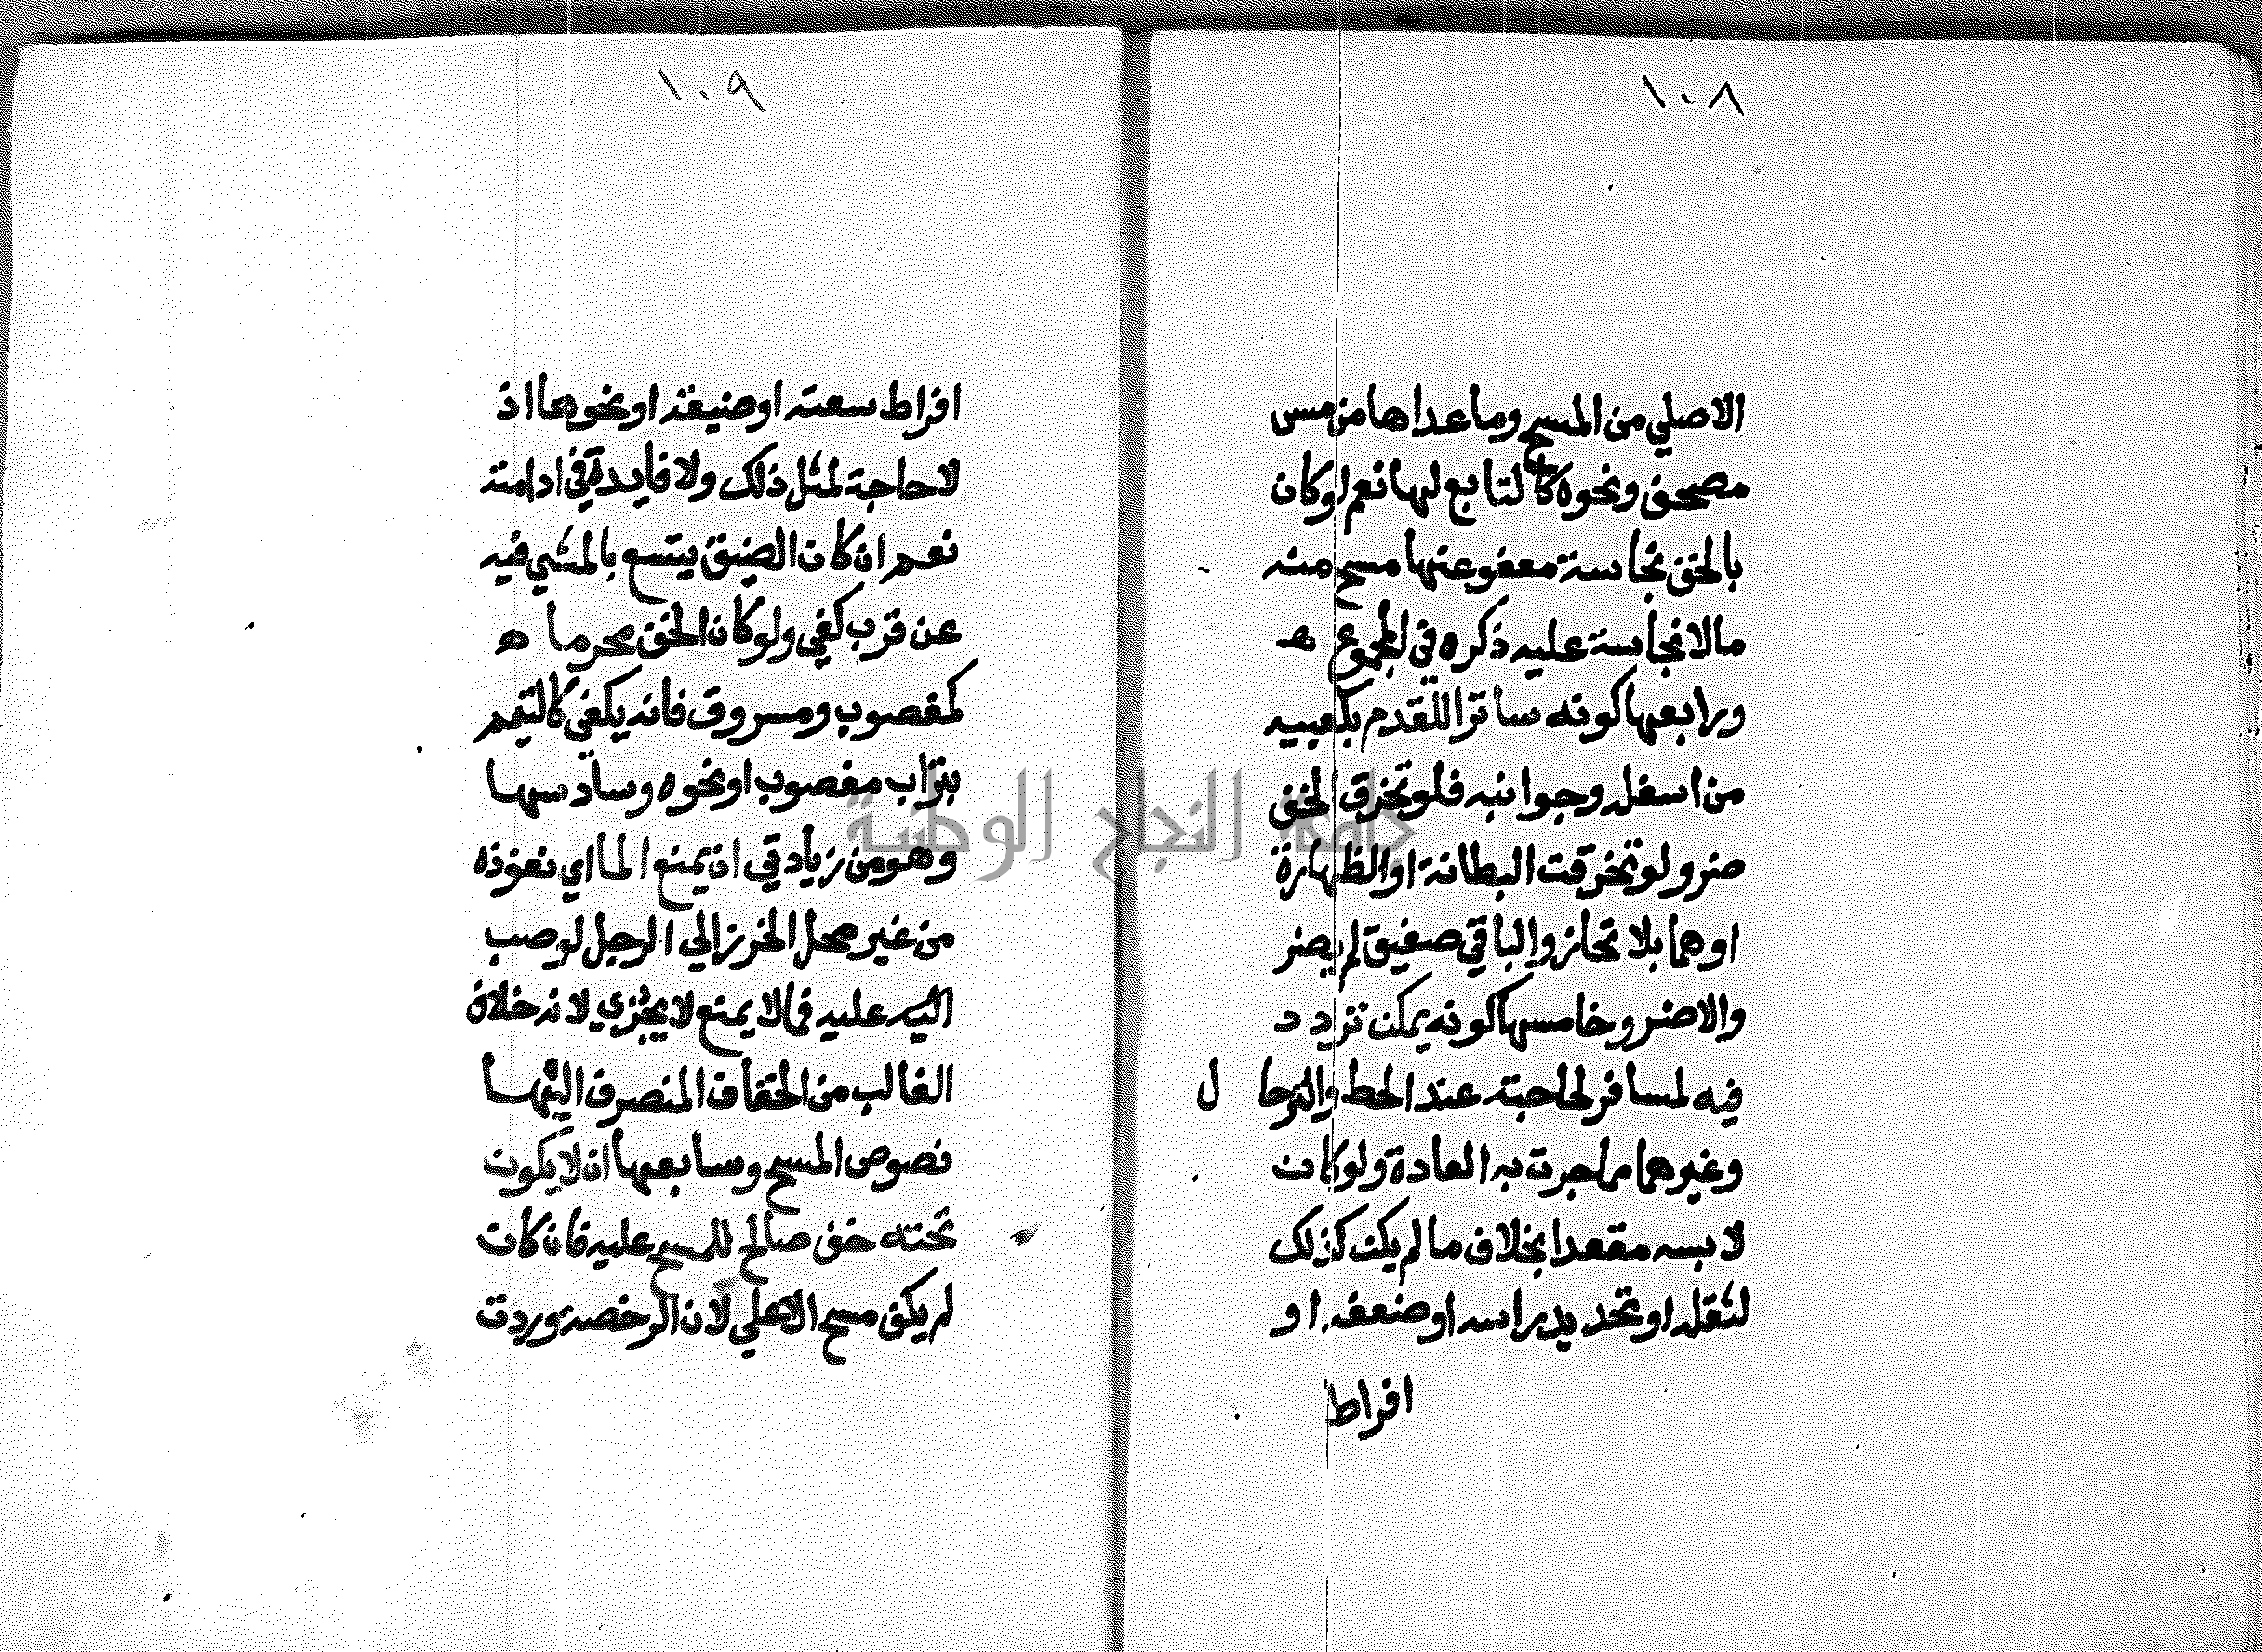 ١٠٨
الاصلي من المسح وما عداها من مس
مصحف ونحوه كالتابع لها نعم لو كان
بالخف نجاسة معفو عنها مسح منه
مالا نجاسة عليه ذكره في المجموع
ورابعها كونه ساترا للقدم بكعبيه
من اسفله وجوانبه فلو تخرق الخف
ضر ولو تخرقت البطانة او الظهارة
او هما بلا تحاذ والباقي صفيق لم يضر
والا ضر وخامسها كونه يمكن تردد
فيه لمسافر لحاجته عند الحط والترحال
وغيرهما مما جرت به العادة ولو كان
لابسه مقعدا بخلاف ما لم يكن كذلك
لثقله او تحديد راسه او ضعفه او
افراط
١٠٩
افراط سعته او ضيقه او نحوها اذ
لا حاجة لمثل ذلك ولا فايدة في ادامته
نعم ان كان الضيق يتسع بالمشي فيه
عن قرب كفي ولو كان الخف محرما
كمغصوب ومسروق فانه يكفي كالتيمم
بتراب مغصوب او نحوه وسادسها
وهو من زيادتي ان يمنع الما اي نفوذه
من غير محل الخرز الي الرجل لو صب
عليه فما لا يمنع لا يجزي لانه خلاف
الغالب من الخفاف المنصرف اليها
نصوص المسح وسابعها ان لا يكون
تحته خف صالح للمسح عليه فان كان
لم يكف مسح الاعلي لان الرخصة وردت
جامعة النجاح الوطنية